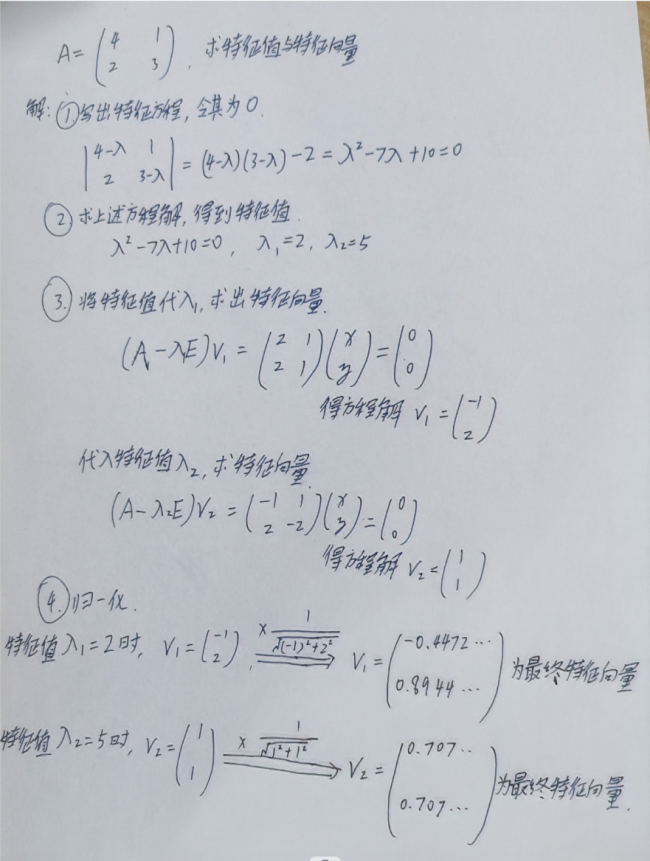 A = (4 1
2 3), 求特征值与特征向量
解: ① 写出特征方程, 令其为0.
|4-λ 1
2 3-λ| = (4-λ)(3-λ)-2 = λ²-7λ+10=0
② 求上述方程解, 得到特征值.
λ²-7λ+10=0, λ₁=2, λ₂=5
③. 将特征值代入, 求出特征向量.
(A-λ₁E)V₁ = (2 1
2 1)(x
y) = (0
0)
得方程解 V₁=(-1
2)
代入特征值λ₂, 求特征向量.
(A-λ₂E)V₂ = (-1 1
2 -2)(x
y) = (0
0)
得方程解 V₂=(1
1)
④. 归一化.
特征值λ₁=2时, V₁=(-1
2), × 1/√(-1)²+2² ⇒ V₁=(-0.4472...
0.8944...) 为最终特征向量
特征值λ₂=5时, V₂=(1
1) × 1/√1²+1² ⇒ V₂=(0.707...
0.707...) 为最终特征向量.